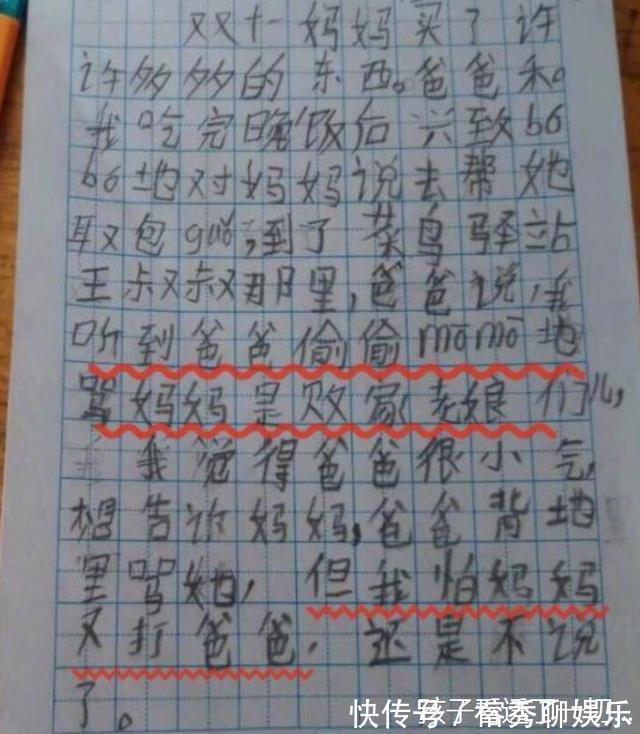 双十一妈妈买了许
许多多的东西。爸爸和。
我吃完晚饭后兴致bó
bó地对妈妈说去帮她
取包guǒ,到了菜鸟驿站
王叔叔那里,爸爸说,我
听到爸爸偷偷mōmō地
骂妈妈是败家老娘们儿,
我觉得爸爸很小气,
想告诉妈妈,爸爸背地
里骂她,但我怕妈妈
又打爸爸,还是不说
了。
快传号/秀聊娱乐